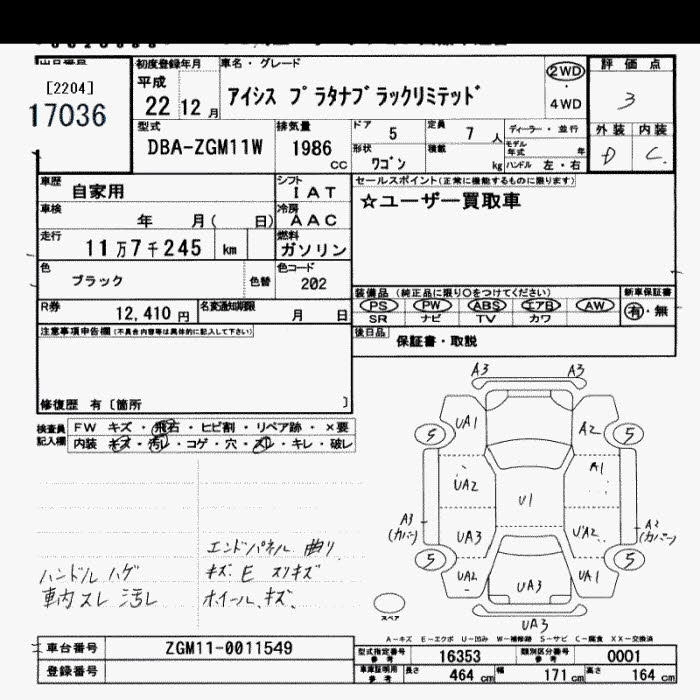 出品番号
[2204]
17036
初度登録年月
平成
22 12 月
車名・グレード
アイシス プラタナブラックリミテッド
2WD
・
4WD
評価点
3
外装 内装
D C
型式
DBA-ZGM11W
排気量
1986
CC
ドア
5
定員
7 人
ディーラー・並行
モデル年式 年
形状
ワゴン
積載
kg
ハンドル 左・右
車歴
自家用
シフト
IAT
セールスポイント(正常に機能するものに限ります)
☆ユーザー買取車
車検
年 月( 日)
冷房
AAC
走行
11万7千245 km
燃料
ガソリン
色
ブラック
色替
色コード
202
R券
12,410 円
名変通知期限
月 日
装備品(純正品に限り○をつけてください)
PS PW ABS エアB AW
SR ナビ TV カワ
新車保証書
有・無
後日品
保証書・取説
注意事項申告欄(不具合内容等は具体的に記入して下さい)
修復歴 有〔箇所 〕
検査員記入欄
FW キズ・飛石・ヒビ割・リペア跡・×要
内装 キズ・汚レ・コゲ・穴・スレ・キレ・破レ
エンドパネル 曲り
ハンドル ハゲ
キズ. E スリキズ
車内スレ 汚レ
ホイール、キズ.
A3 A3
UA1 A2
S S
UA2 A1
U1
A3
(カバー)
UA3 UA2
A2
(カバー)
S S
UA2 UA3 UA1
UA3
スペア
A-キズ E-エクボ U-凹み W-補修跡 S-サビ C-腐食 XX-交換済
車台番号
ZGM11-0011549
登録番号
型式指定番号
参考
16353
類別区分番号
参考
0001
車庫証明用
参考
長さ 464 cm
幅 171 cm
高さ 164 cm